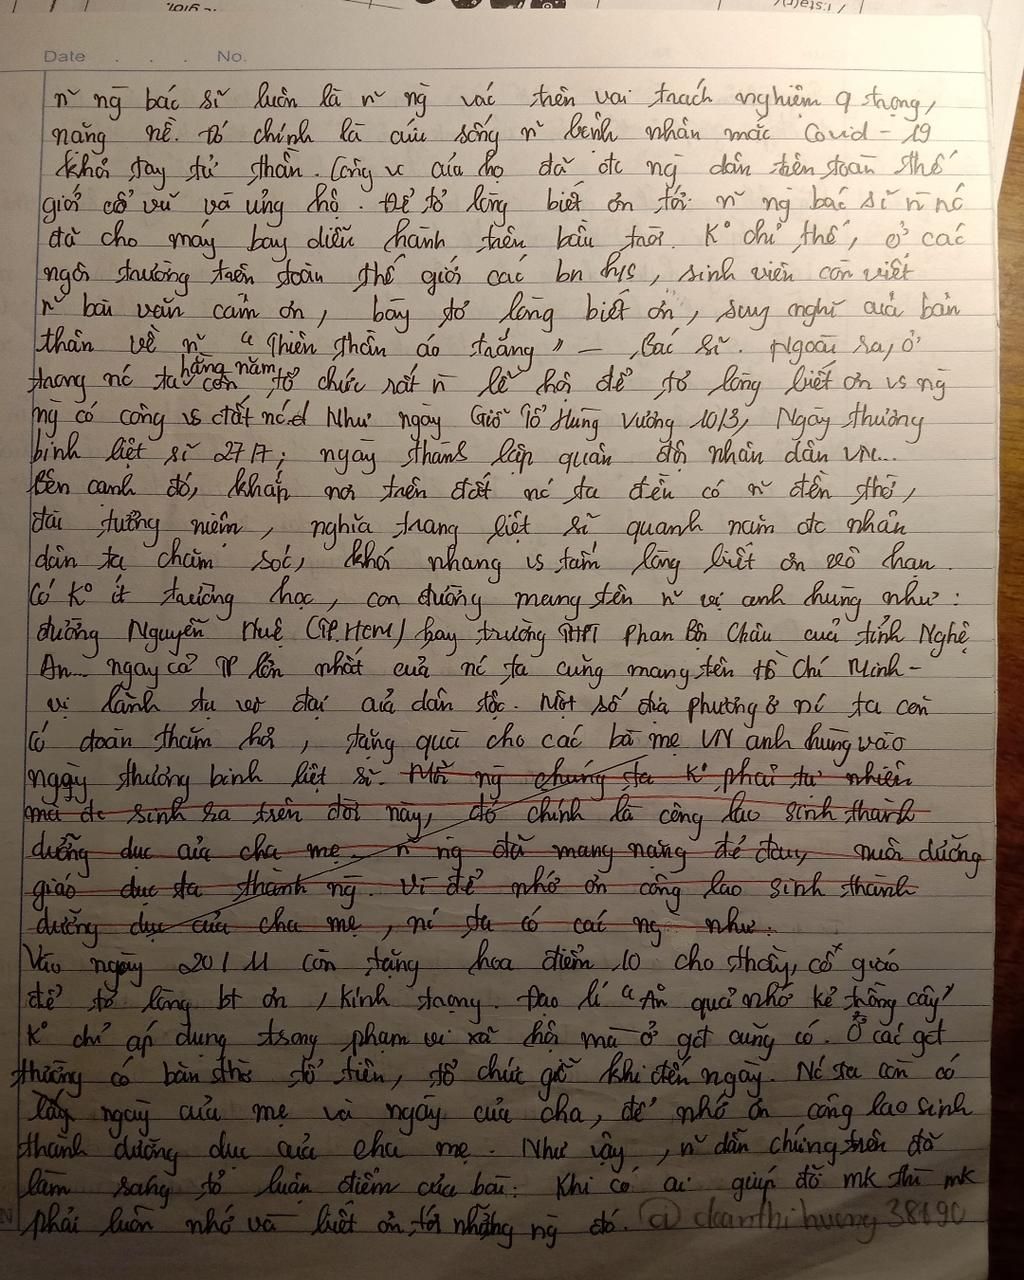 Date . . . No.
n~ ng bác sĩ luôn là n~ ng vác trên vai trách nghiệm q trọng,
nặng nề. Đó chính là cứu sống n~ bệnh nhân mắc Covid - 19
khỏi tay tử thần. Công vc của họ đã đc ng dân trên toàn thế
giới cổ vũ và ủng hộ. Để tỏ lòng biết ơn tới n~ ng bác sĩ n nc
đã cho máy bay diễu hành trên bầu trời. K° chỉ thế, ở các
ngôi trường trên toàn thế giới các bn hs, sinh viên còn viết
n~ bài văn cảm ơn, bày tỏ lòng biết ơn, suy nghĩ của bản
thân về n~ "Thiên thần áo trắng" - Bác sĩ. Ngoài ra, ở
trong nc ta hằng năm còn tổ chức rất n lễ hội để tỏ lòng biết ơn vs ng
ng có công vs đất nc. Như ngày Giỗ Tổ Hùng Vương 10/3, Ngày thương
binh liệt sĩ 27/7; ngày thành lập quân đội nhân dân VN...
Bên cạnh đó, khắp nơi trên đất nc ta đều có n~ đền thờ,
đài tưởng niệm, nghĩa trang liệt sĩ quanh năm đc nhân
dân ta chăm sóc, khói nhang vs tấm lòng biết ơn vô hạn.
Có K° ít trường học, con đường mang tên n~ vị anh hùng như:
đường Nguyễn Huệ (TP.HCM) hay trường THPT Phan Bội Châu của tỉnh Nghệ
An... ngay cả TP lớn nhất của nc ta cũng mang tên Hồ Chí Minh -
vị lãnh tụ vĩ đại của dân tộc. Một số địa phương ở nc ta còn
có đoàn thăm hỏi, tặng quà cho các bà mẹ VN anh hùng vào
ngày thương binh liệt sĩ. Mỗi ng chúng ta K° phải tự nhiên
mà đc sinh ra trên đời này, đó chính là công lao sinh thành
dưỡng dục của cha mẹ. n~ ng đã mang nặng đẻ đau, nuôi dưỡng
giáo dục ta thành ng. Vì để nhớ ơn công lao sinh thành
dưỡng dục của cha mẹ, nc ta có các ng như:
Vào ngày 20/11 còn tặng hoa điểm 10 cho thầy, cô giáo
để tỏ lòng bt ơn, kính trọng. Đạo lí "Ăn quả nhớ kẻ trồng cây"
K° chỉ áp dụng trong phạm vi xã hội mà ở gđ cũng có. Ở các gđ
thường có bàn thờ tổ tiên, tổ chức giỗ khi đến ngày. Nc ta còn có
lấy ngày của mẹ và ngày của cha, để nhớ ơn công lao sinh
thành dưỡng dục của cha mẹ. Như vậy, n~ dẫn chứng trên đã
làm sáng tỏ luận điểm của bài: Khi có ai giúp đỡ mk thì mk
phải luôn nhớ và biết ơn tới những ng đó. @doanthihuong38190